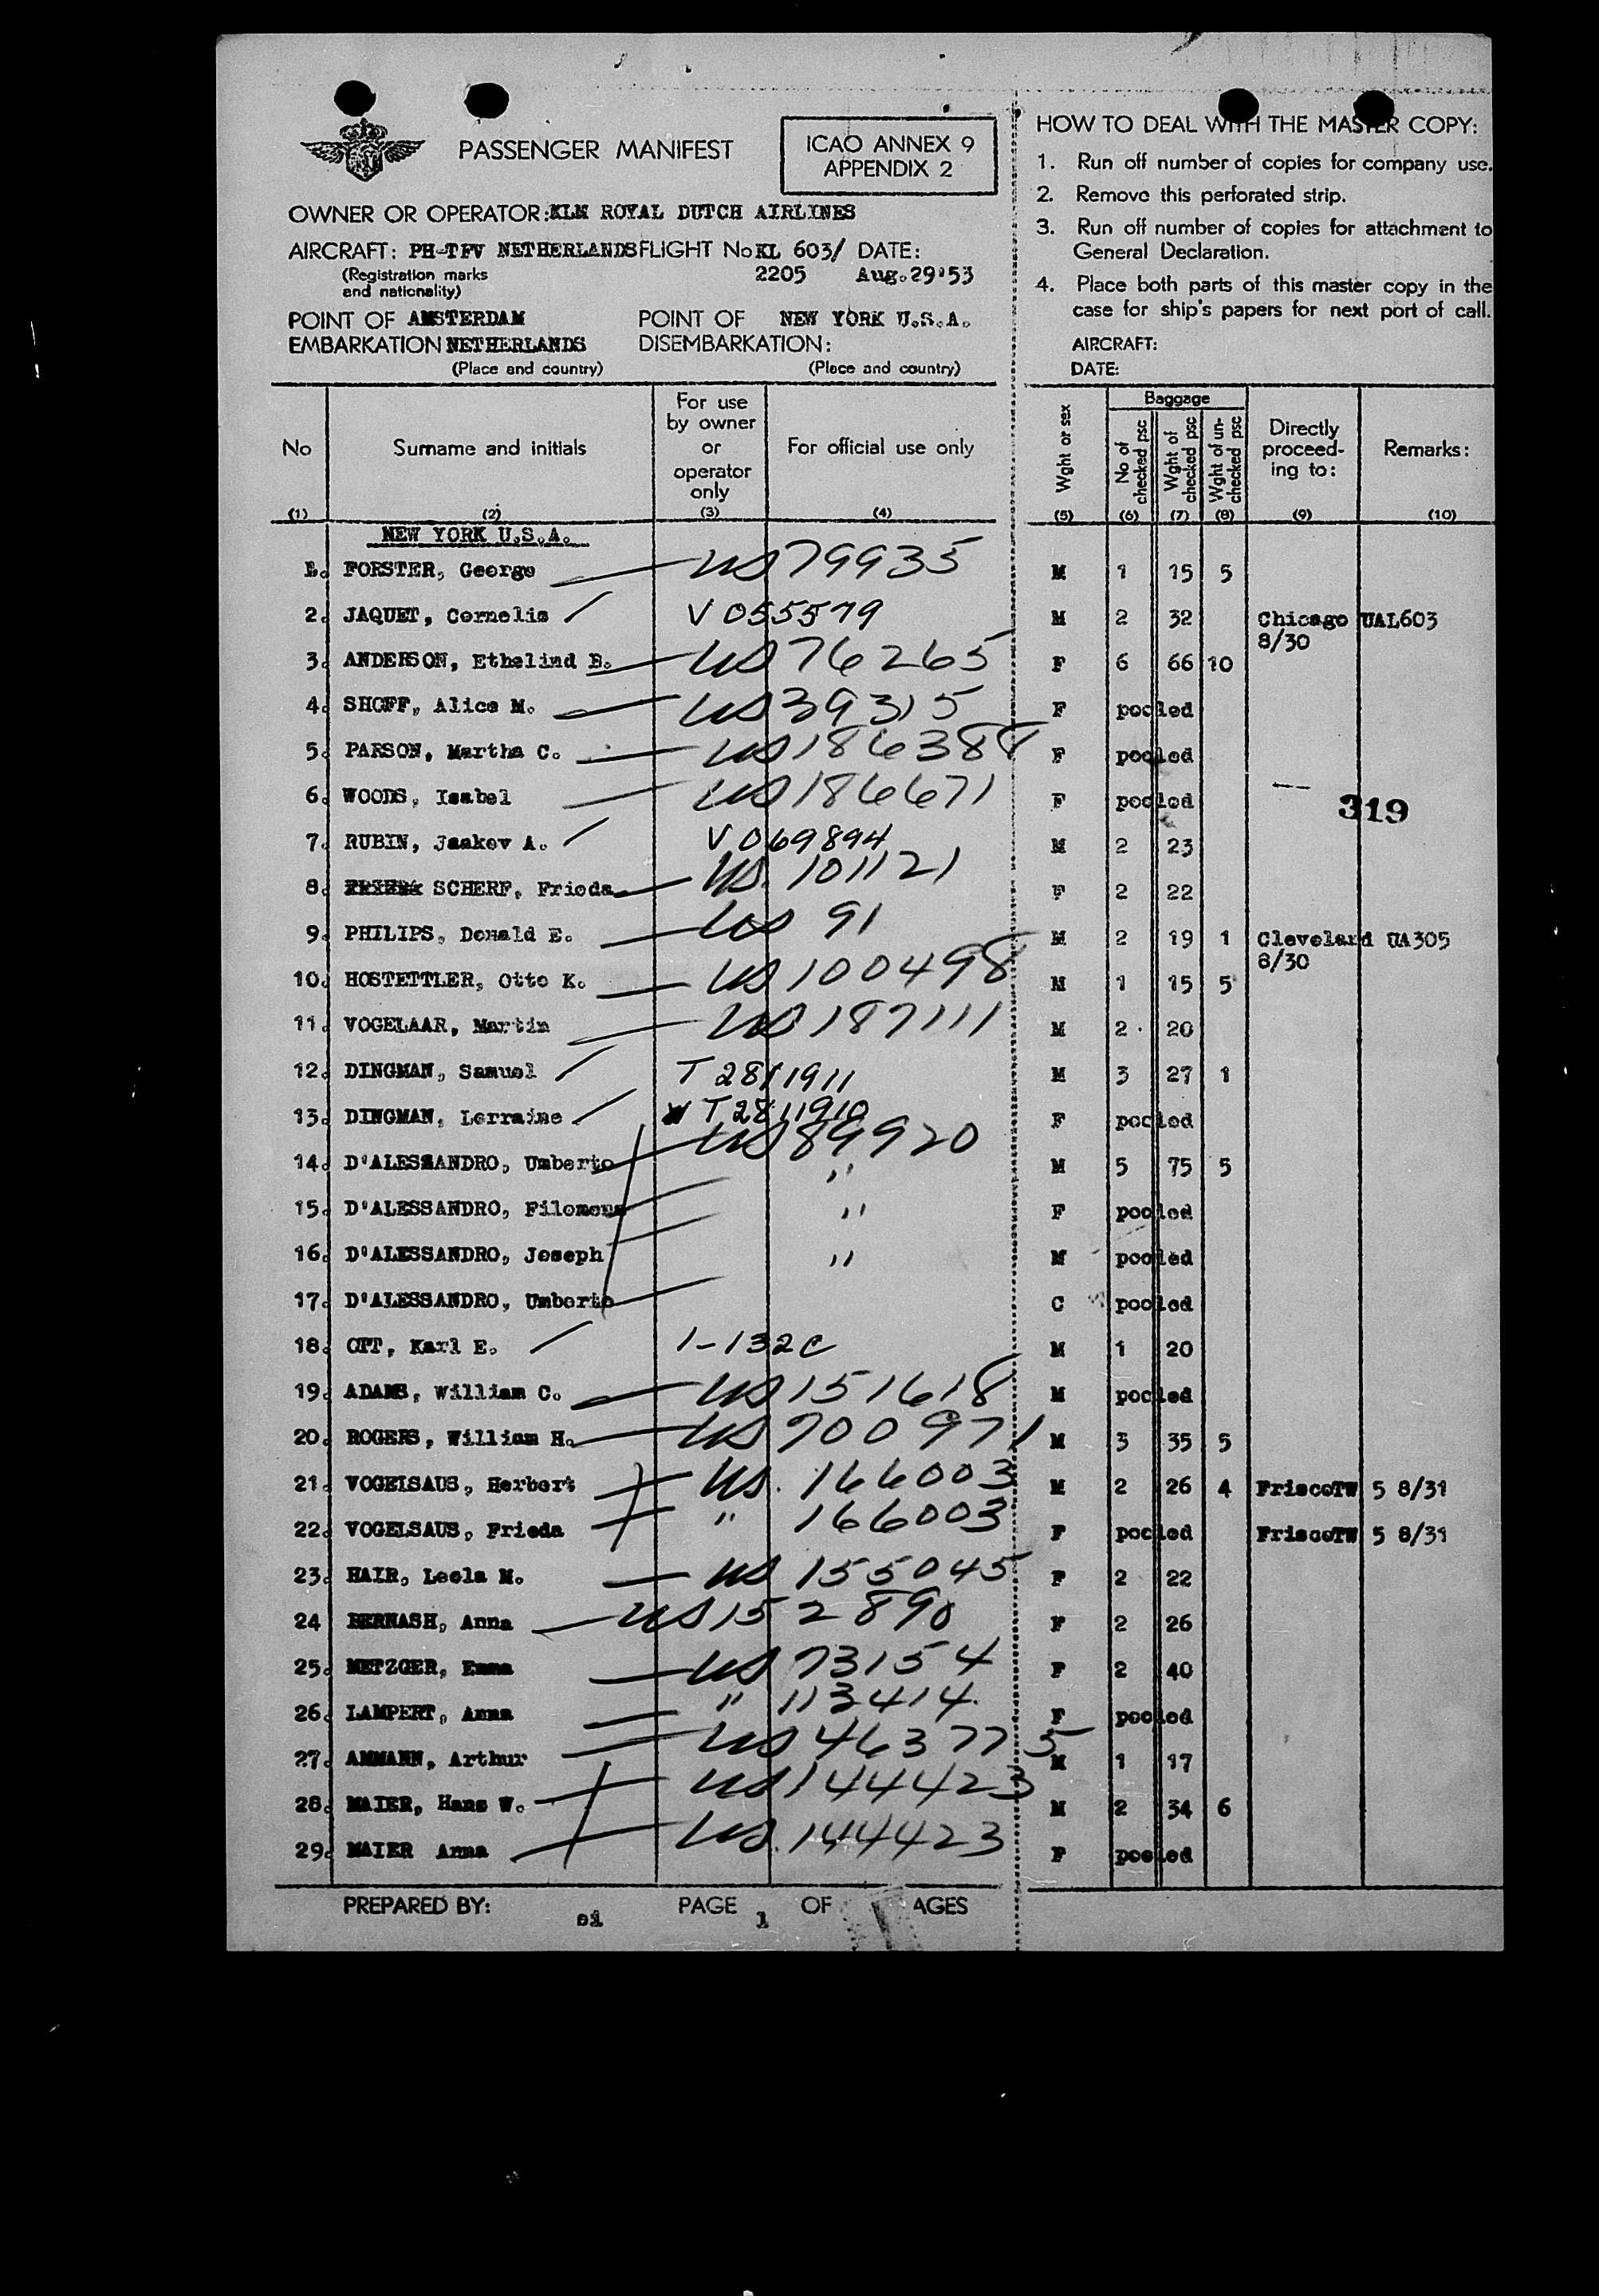 PASSENGER MANIFEST
ICAO ANNEX 9
APPENDIX 2
OWNER OR OPERATOR: KLM ROYAL DUTCH AIRLINES
AIRCRAFT: PH-TFV NETHERLANDS FLIGHT No KL 603/ DATE:
(Registration marks 2205 Aug.29'53
and nationality)
POINT OF AMSTERDAM POINT OF NEW YORK U.S.A.
EMBARKATION NETHERLANDS DISEMBARKATION:
(Place and country) (Place and country)
HOW TO DEAL WITH THE MASTER COPY:
1. Run off number of copies for company use.
2. Remove this perforated strip.
3. Run off number of copies for attachment to
General Declaration.
4. Place both parts of this master copy in the
case for ship's papers for next port of call.
AIRCRAFT:
DATE:
No Surname and initials For use by owner or operator only For official use only Wght or sex Baggage No of checked psc Wght of checked psc Wght of un-checked psc Directly proceed-ing to: Remarks:
(1) (2) (3) (4) (5) (6) (7) (8) (9) (10)
NEW YORK U.S.A.
1. FORSTER, George US 79935 M 1 15 5
2. JAQUET, Cornelis V 055579 M 2 32 Chicago UAL603
8/30
3. ANDERSON, Ethelind B. US 76265 F 6 66 10
4. SHOFF, Alice M. US 39315 F pooled
5. PARSON, Martha C. US 186388 F pooled
6. WOODS, Isabel US 186671 F pooled
319
7. RUBIN, Jaakov A. V 069894 M 2 23
8. SCHERF, Frieda US. 101121 F 2 22
9. PHILIPS, Donald E. US 91 M 2 19 1 Cleveland UA305
8/30
10. HOSTETTLER, Otto K. US 100498 M 1 15 5
11. VOGELAAR, Martin US 187111 M 2 20
12. DINGMAN, Samuel T 2811911 M 3 27 1
13. DINGMAN, Lorraine T 2811910 F pooled
14. D'ALESSANDRO, Umberto US 89920 M 5 75 5
15. D'ALESSANDRO, Filomena " F pooled
16. D'ALESSANDRO, Joseph " M pooled
17. D'ALESSANDRO, Umberto C pooled
18. OTT, Karl E. 1-132C M 1 20
19. ADAMS, William C. US 151618 M pooled
20. ROGERS, William H. US 700971 M 3 35 5
21. VOGELSAUS, Herbert US. 166003 M 2 26 4 FriscoTW 5 8/31
22. VOGELSAUS, Frieda " 166003 F pooled FriscoTW 5 8/31
23. HAIR, Leola M. US 155045 F 2 22
24 BERNASH, Anna US 152890 F 2 26
25. METZGER, Emma US 73154 F 2 40
26. LAMPERT, Anna " 113414 F pooled
27. AMMANN, Arthur US 463775 M 1 17
28. MAIER, Hans W. US 144423 M 2 34 6
29. MAIER Anna US. 144423 F pooled
PREPARED BY: ei PAGE 1 OF AGES